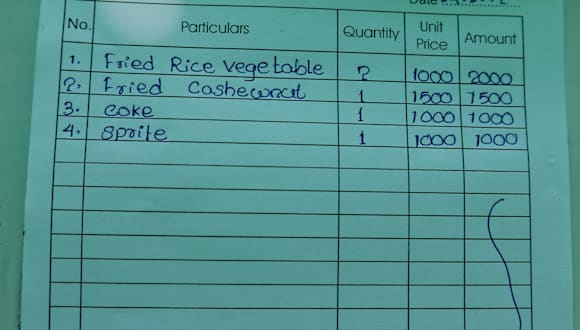 Date
No. Particulars Quantity Unit Price Amount
1. Fried Rice vegetable 2 1000 2000
2. Fried Cashewnut 1 1500 1500
3. coke 1 1000 1000
4. sprite 1 1000 1000